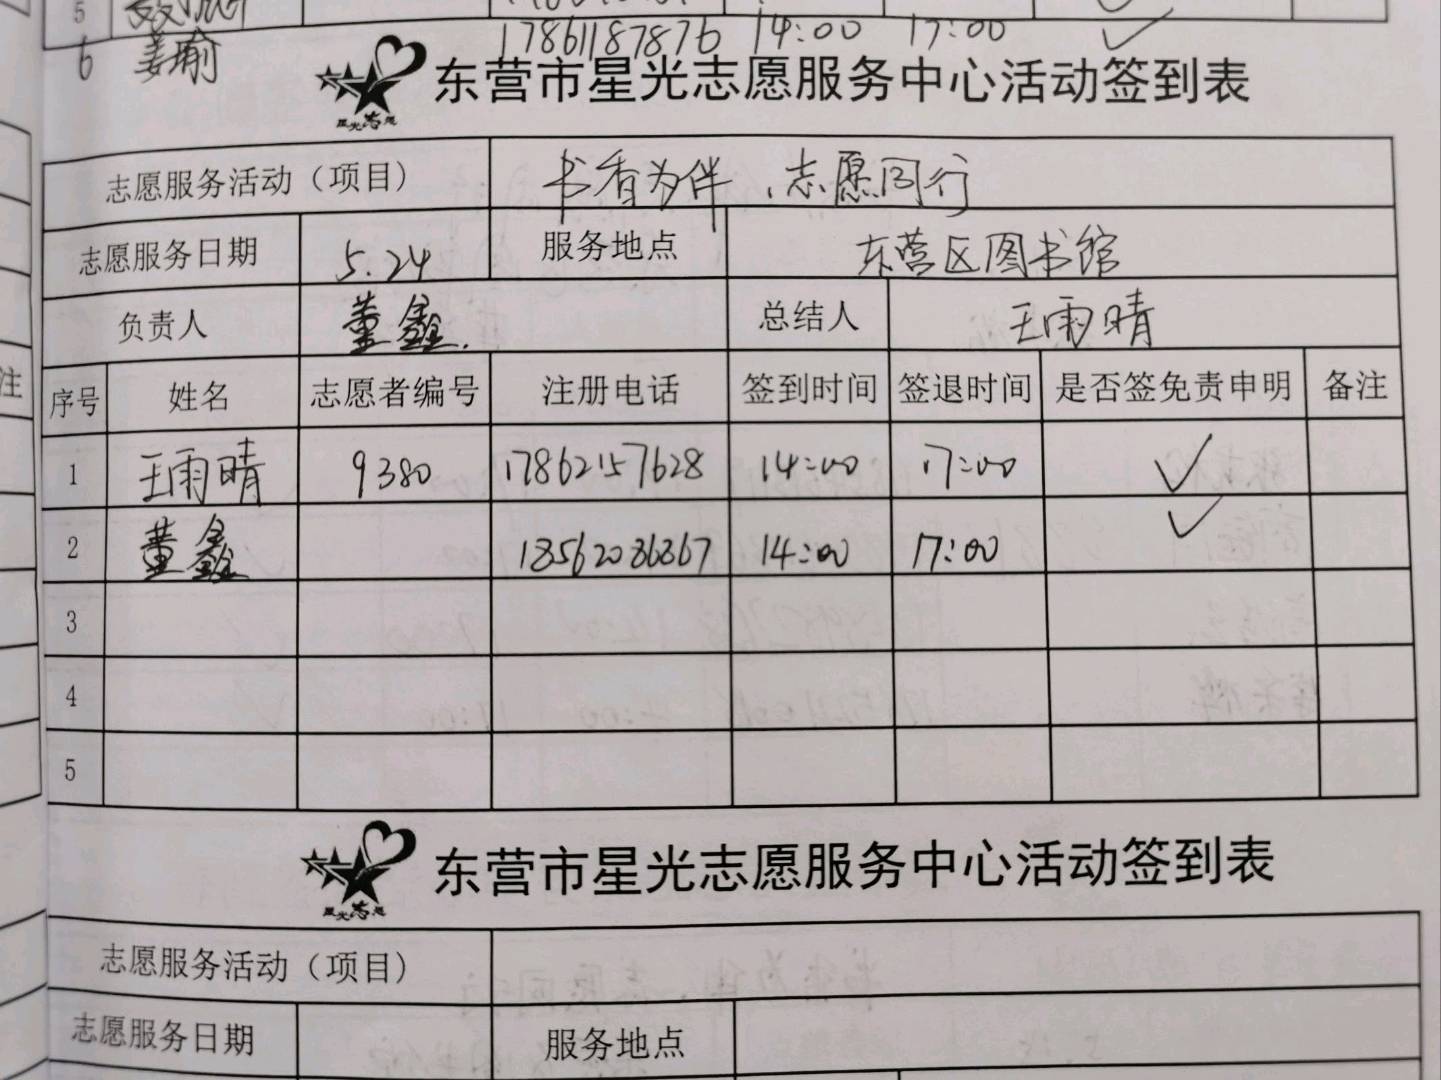 5
6 姜瑜 17861187876 14:00 17:00 ✓
东营市星光志愿服务中心活动签到表
星光志愿
志愿服务活动（项目） 书香为伴、志愿同行
志愿服务日期 5.24 服务地点 东营区图书馆
负责人 董鑫. 总结人 王雨晴
注
序号 姓名 志愿者编号 注册电话 签到时间 签退时间 是否签免责申明 备注
1 王雨晴 9380 17862157628 14:00 17:00 ✓
2 董鑫 18562086867 14:00 17:00 ✓
3
4
5
东营市星光志愿服务中心活动签到表
星光志愿
志愿服务活动（项目）
志愿服务日期 服务地点